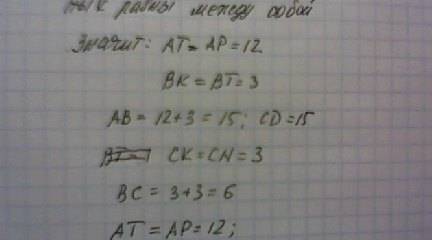 ных равны между собой
Значит: AT = AP = 12
BK = BT = 3
AB = 12+3 = 15; CD = 15
CK = CN = 3
BC = 3+3 = 6
AT = AP = 12;